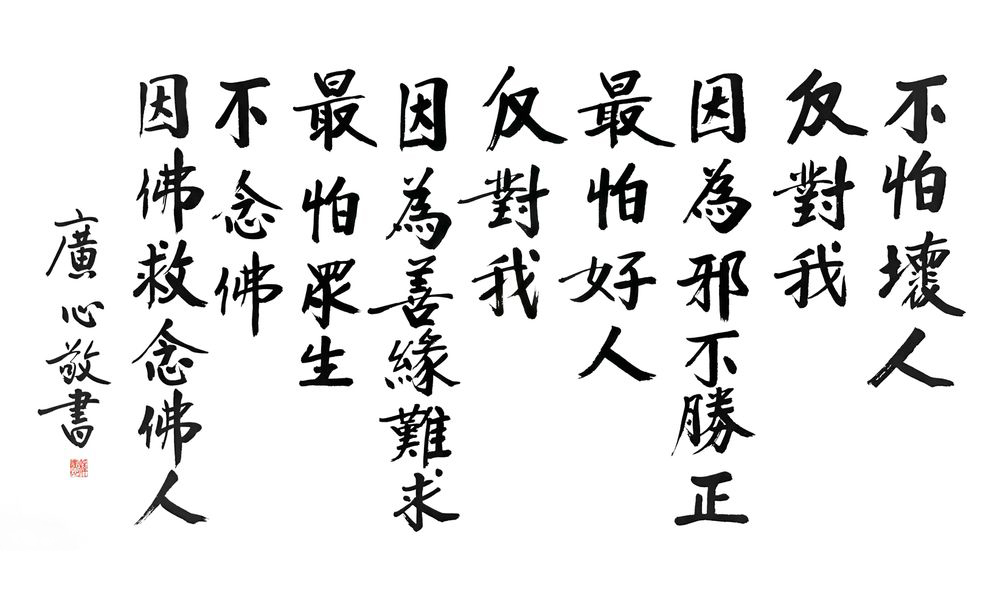 不怕壞人
反對我
因為邪不勝正
最怕好人
反對我
因為善緣難求
最怕眾生
不念佛
因佛救念佛人
廣心敬書